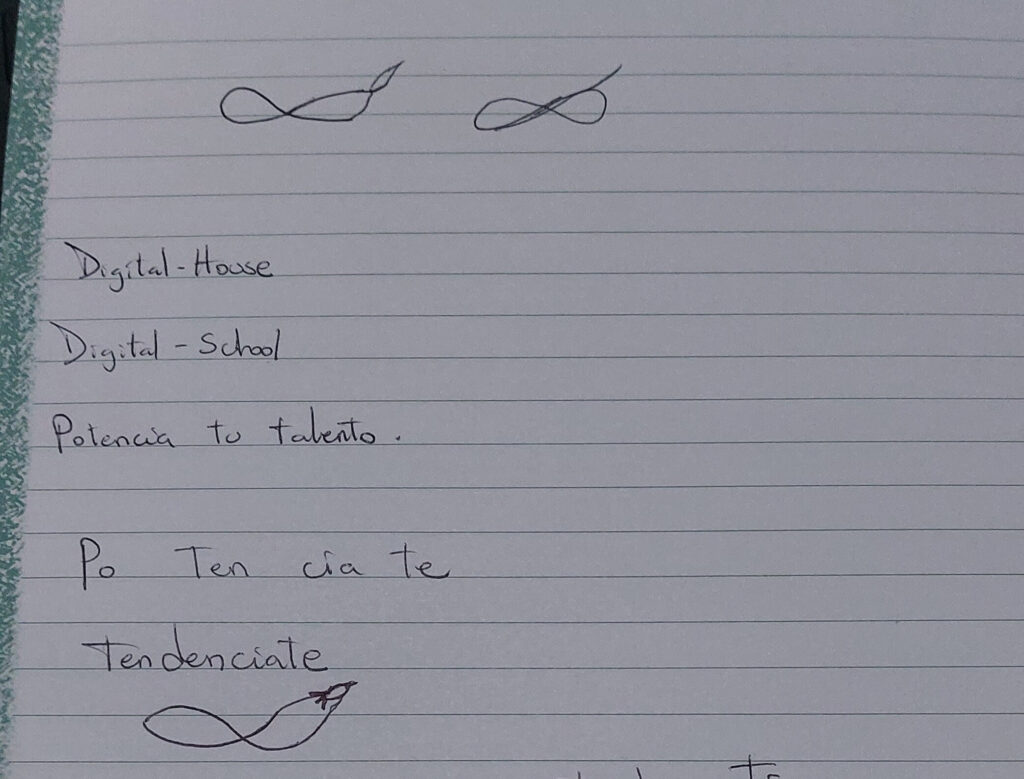 Digital-House
Digital-School
Potencia tu talento.
Po Ten cia te
Tendenciate